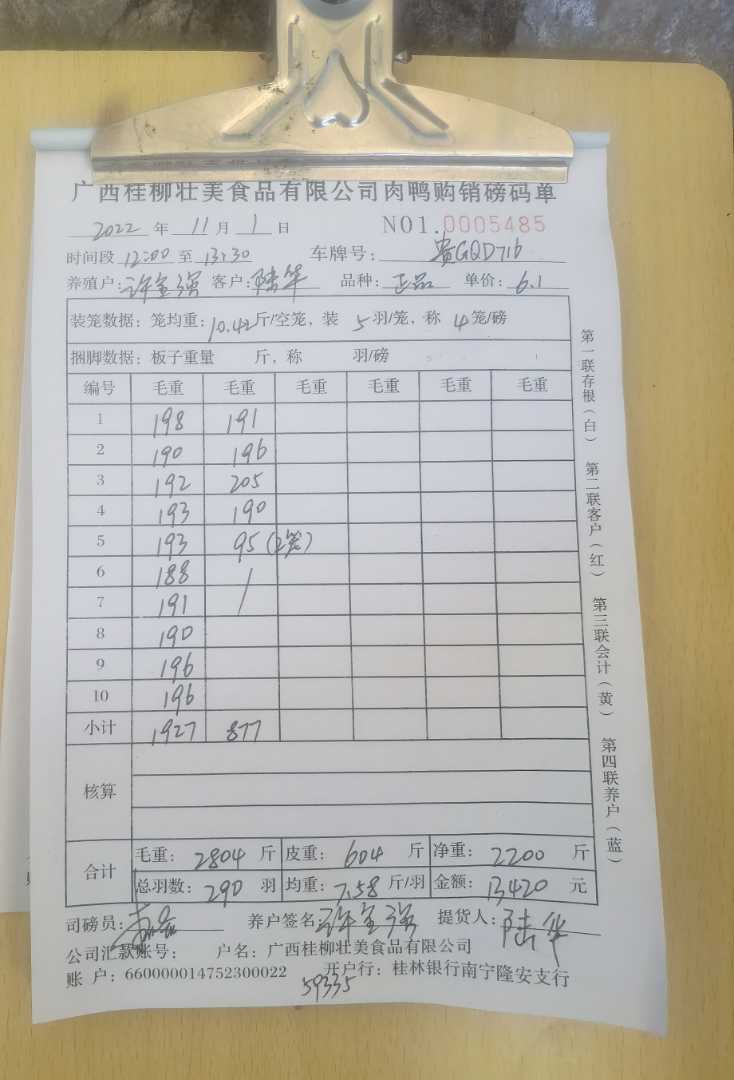 广西桂柳壮美食品有限公司肉鸭购销磅码单
2022 年 11 月 1 日 NO1.0005485
时间段 12:00 至 13:30 车牌号: 贵GQD716
养殖户: 许全强 客户: 陆华 品种: 正品 单价: 6.1
装笼数据: 笼均重: 10.42斤/空笼, 装 5 羽/笼, 称 4 笼/磅
捆脚数据: 板子重量 斤, 称 羽/磅
编号 毛重 毛重 毛重 毛重 毛重 毛重
1 198 191
2 190 196
3 192 205
4 193 190
5 193 95 (2笼)
6 188 /
7 191 /
8 190
9 196
10 196
小计 1927 877
核算
合计 毛重: 2804 斤 皮重: 604 斤 净重: 2200 斤
总羽数: 290 羽 均重: 7.58 斤/羽 金额: 13420 元
司磅员: 养户签名: 许全强 提货人: 陆华
公司汇款账号: 户名: 广西桂柳壮美食品有限公司
账 户: 660000014752300022 开户行: 桂林银行南宁隆安支行
59335
第一联存根(白) 第二联客户(红) 第三联会计(黄) 第四联养户(蓝)